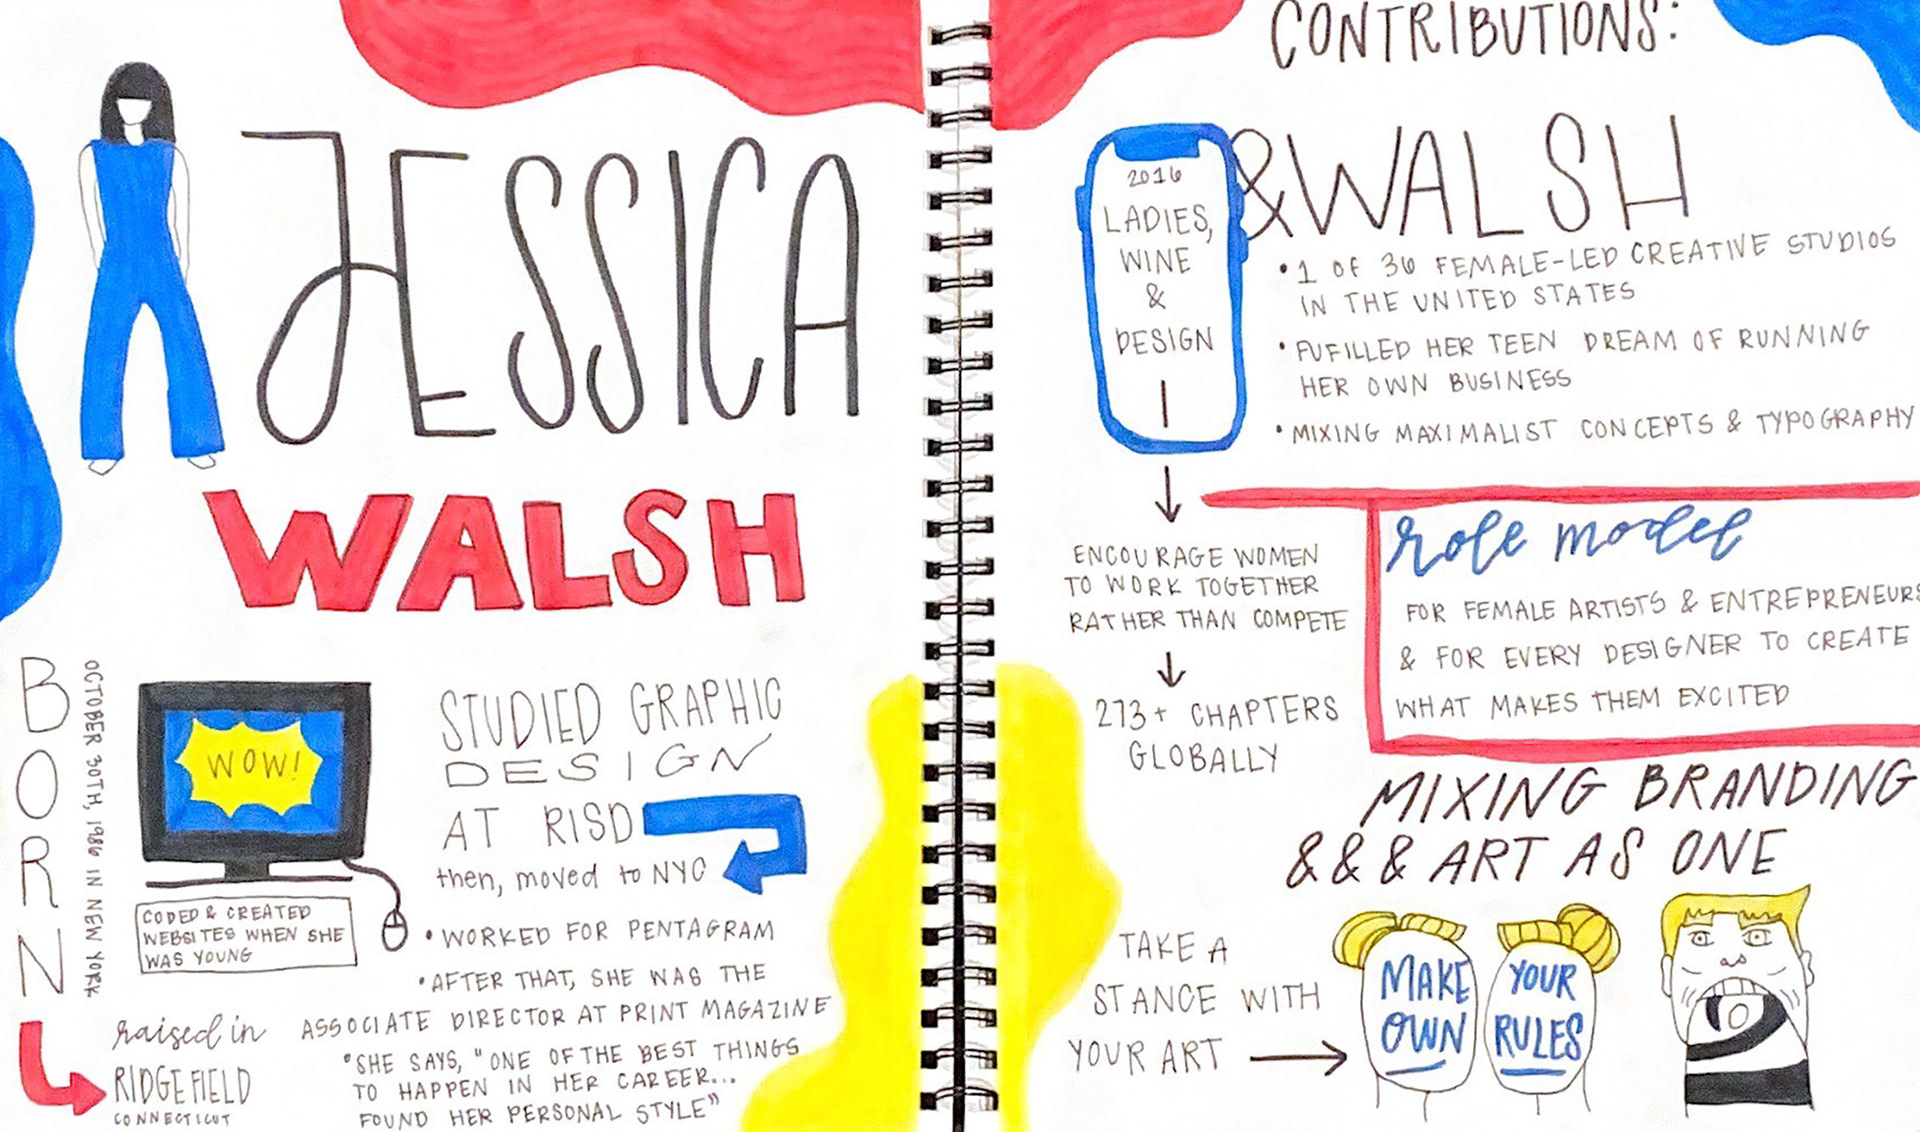 JESSICA
WALSH
BORN
OCTOBER 30TH, 1986 IN NEW YORK
WOW!
CODED & CREATED
WEBSITES WHEN SHE
WAS YOUNG
raised in
RIDGEFIELD
CONNECTICUT
STUDIED GRAPHIC
DESIGN
AT RISD
then, moved to NYC
• WORKED FOR PENTAGRAM
• AFTER THAT, SHE WAS THE
ASSOCIATE DIRECTOR AT PRINT MAGAZINE
• SHE SAYS, "ONE OF THE BEST THINGS
TO HAPPEN IN HER CAREER...
FOUND HER PERSONAL STYLE"
CONTRIBUTIONS:
2016
LADIES,
WINE
&
DESIGN
ENCOURAGE WOMEN
TO WORK TOGETHER
RATHER THAN COMPETE
273+ CHAPTERS
GLOBALLY
&WALSH
• 1 OF 36 FEMALE-LED CREATIVE STUDIOS
IN THE UNITED STATES
• FUFILLED HER TEEN DREAM OF RUNNING
HER OWN BUSINESS
• MIXING MAXIMALIST CONCEPTS & TYPOGRAPHY
role model
FOR FEMALE ARTISTS & ENTREPRENEURS
& FOR EVERY DESIGNER TO CREATE
WHAT MAKES THEM EXCITED
MIXING BRANDING
&&& ART AS ONE
TAKE A
STANCE WITH
YOUR ART
MAKE
OWN
YOUR
RULES